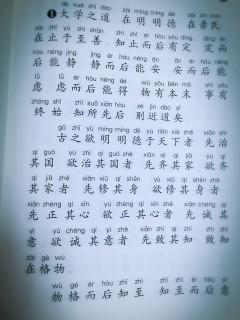 dà xué zhī dào zài míng míng dé zài xīn mín
❶大学之道 在明明德 在亲民
zài zhǐ yú zhì shàn zhī zhǐ ér hòu yǒu dìng dìng ér
在止于至善 知止而后有定 定而
hòu néng jìng jìng ér hòu néng ān ān ér hòu néng
后能静 静而后能安 安而后能
lǜ lǜ ér hòu néng dé wù yǒu běn mò shì yǒu
虑 虑而后能得 物有本末 事有
zhōng shǐ zhī suǒ xiān hòu zé jìn dào yǐ
终始 知所先后 则近道矣
gǔ zhī yù míng míng dé yú tiān xià zhě xiān zhì
古之欲明明德于天下者 先治
qí guó yù zhì qí guó zhě xiān qí qí jiā yù qí
其国 欲治其国者 先齐其家 欲齐
qí jiā zhě xiān xiū qí shēn yù xiū qí shēn zhě
其家者 先修其身 欲修其身者
xiān zhèng qí xīn yù zhèng qí xīn zhě xiān chéng qí
先正其心 欲正其心者 先诚其
yì yù chéng qí yì zhě xiān zhì qí zhī zhì zhī
意 欲诚其意者 先致其知 致知
zài gé wù
在格物
wù gé ér hòu zhī zhì zhī zhì ér hòu yì
物格而后知至 知至而后意